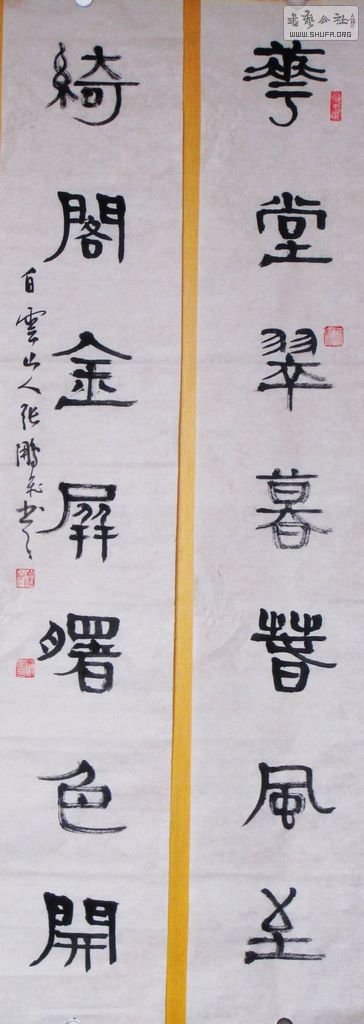 書藝公社
WWW.SHUFA.ORG
華堂翠暮春風至
綺閣金屏曙色開
白雲山人張鵬飛書之